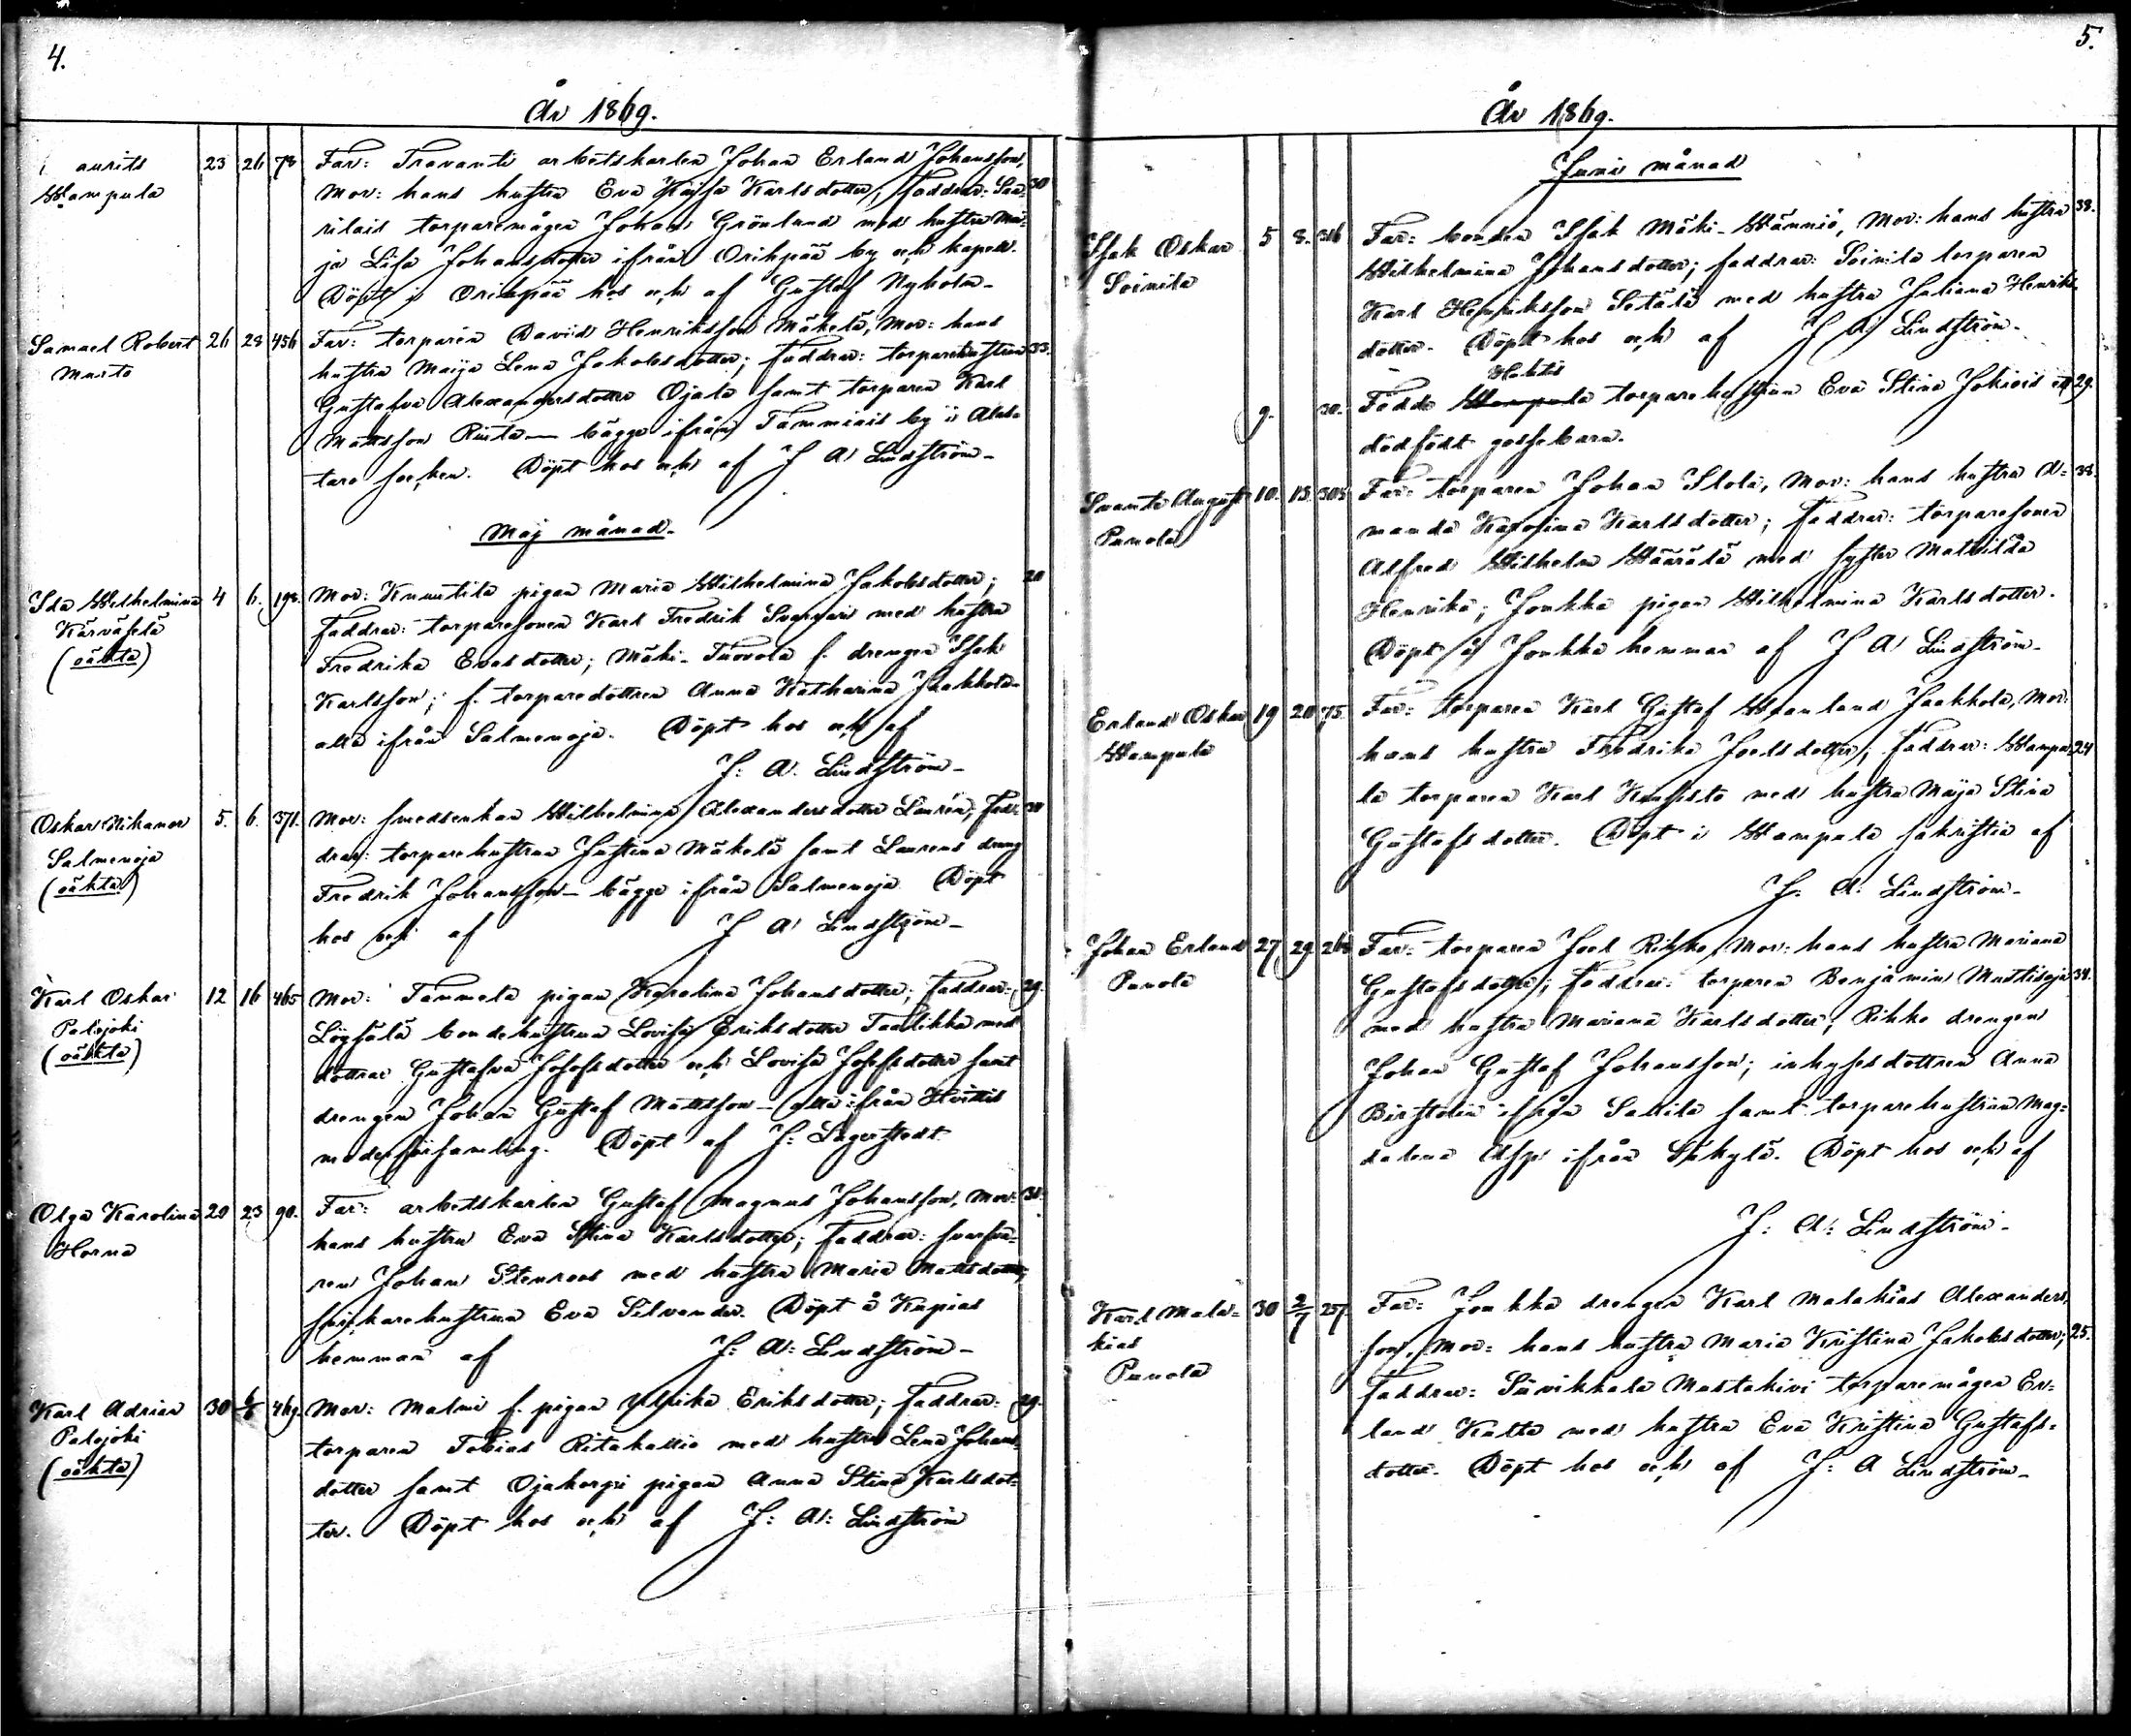 4.
År 1869.
aurits 23 26 78 Far: Travanti arbetskarlen Johan Erland Johansson,
Wampula Mor: hans hustru Eva Kajsa Karlsdotter; faddrar: Saa= 30
rilais torparemågen Johan Grönlund med hustru Ma=
ja Lisa Johansdotter ifrån Orihpää by och kapell.
Döpt i Orihpää hos och af Gustaf Nyholm-
Samuel Robert 26 28 456 Far: torparen David Henriksson Mäkelä, Mor: hans
Murto hustru Maija Lena Jakobsdotter; faddrar: torparehustrun 33.
Gustafva Alexandersdotter Ojala samt torparen Karl
Mattsson Rinta— bägge ifrån Tammiais by i Alas-
taro socken. Döpt hos och af J A Lindström-
Maj månad.
Ida Wilhelmina 4 6. 198. Mor: Knuutila pigan Maria Wilhelmina Jakobsdotter; 20
Kärväselä faddrar: torparesonen Karl Fredrik med hustru
(oäkta) Fredrika Evasdotter; Mäki-Tuovola f. drengen Isak
Karlsson; f. torparedottren Anna Katharina Jaakkola-
alla ifrån Salmenoja. Döpt hos och af
J: A. Lindström-
Oskar Nikanor 5. 6. 371. Mor: smedsenkan Wilhelmina Alexandersdotter Laurén; fad= 30
Salmenoja drar: torparehustrun Justina Mäkelä samt Laurens dreng
(oäkta) Fredrik Johansson— bägge ifrån Salmenoja. Döpt
hos och af J A Lindström-
Karl Oskar 12 16 465 Mor: Tammela pigan Karolina Johansdotter; faddrar: 29.
Palojoki Löysälä bondehustrun Lovisa Eriksdotter Taalikka med
(oäkta) döttrar Gustafva Josefsdotter och Lovisa Josefsdotter samt
drengen Johan Gustaf Mattsson— alla ifrån Hvittis
moderförsamling. Döpt af J: Lagerstedt.
Olga Karolina 20 23 90. Far: arbetskarlen Gustaf Magnus Johansson, Mor: 38.
Horna hans hustru Eva Stina Karlsdotter; faddrar: svarfva=
ren Johan Stenroos med hustru Maria Mattsdotter;
snickarehustrun Eva Silvander. Döpt å Kupias
hemman af J: A: Lindström-
Karl Adrian 30 6/6 469. Mor: Malmi f. pigan Ulrika Eriksdotter; faddrar: 29.
Palojoki torparen Tobias Ritakallio med hustru Lena Johans=
(oäkta) dotter samt Ojakorpi pigan Anna Stina Karlsdot=
ter. Döpt hos och af J: A: Lindström
5.
År 1869.
Juni månad
Isak Oskar 5 8. 316 Far: bonden Isak Mäki-Wänniö, Mor: hans hustru 38.
Soinila Wilhelmina Johansdotter; faddrar: Soinila torparen
Karl Henriksson Setälä med hustru Juliana Henriks=
dotter. Döpt hos och af J A Lindström-
Huhtis
9. 30. Födde Wampula torparehustrun Eva Stina Jokiois ett 29.
dödfödt gossebarn.
Svante August 10. 13. 305 Far: torparen Johan Slola, Mor: hans hustru A= 38.
Punola manda Karolina Karlsdotter; faddrar: torparesonen
Alfred Wilhelm Wäärälä med syster Mathilda
Henrika; Jonkka pigan Wilhelmina Karlsdotter.
Döpt å Jonkka hemman af J A Lindström-
Erland Oskar 19 20 75. Far: torparen Karl Gustaf Jaakkola, Mor:
Wampula hans hustru Fredrika Joelsdotter; faddrar: Wampu= 24
la torparen Karl Kuusisto med hustru Maija Stina
Gustafsdotter. Döpt i Wampula sakristia af
J. A. Lindström-
Johan Erland 27 29 268 Far: torparen Joel Rikko, Mor: hans hustru Mariana
Punola Gustafsdotter; faddrar: torparen Benjamin Mustisoja 34.
med hustru Mariana Karlsdotter; Rikko drengen
Johan Gustaf Johansson; inhysesdottren Anna
ifrån Sallila samt torparehustrun Mag=
dalena Asp ifrån Säkylä. Döpt hos och af
J: A: Lindström-
Karl Mala= 30 2/7 257. Far: Jonkka drengen Karl Malakias Alexanders
kias son, Mor: hans hustru Maria Kristina Jakobsdotter; 25.
Punola faddrar: Suvikkala Mustakivi torparemågen Er=
land Kulta med hustru Eva Kristina Gustafs=
dotter. Döpt hos och af J: A Lindström-